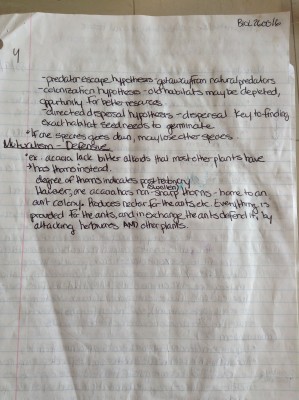 BIOL 2600/6
4
-predator escape hypothesis - get away from natural predators
-colonization hypothesis - old habitats may be depleted,
opportunity for better resources
-directed dispersal hypothesis - dispersal key to finding
exact habitat seed needs to germinate.
*If one species goes down, may lose other species
Mutualism - Defensive
*ex: acacia lack bitter alkaloids that most other plants have
*has thorns instead.
degree of thorns indicates past herbivory
(swollen)
However, one acacia has non-sharp thorns - home to an
ant colony. Produces nectar for the ants, etc. Everything is
provided for the ants, and in exchange, the ants defend it, by
attacking herbivores AND other plants.